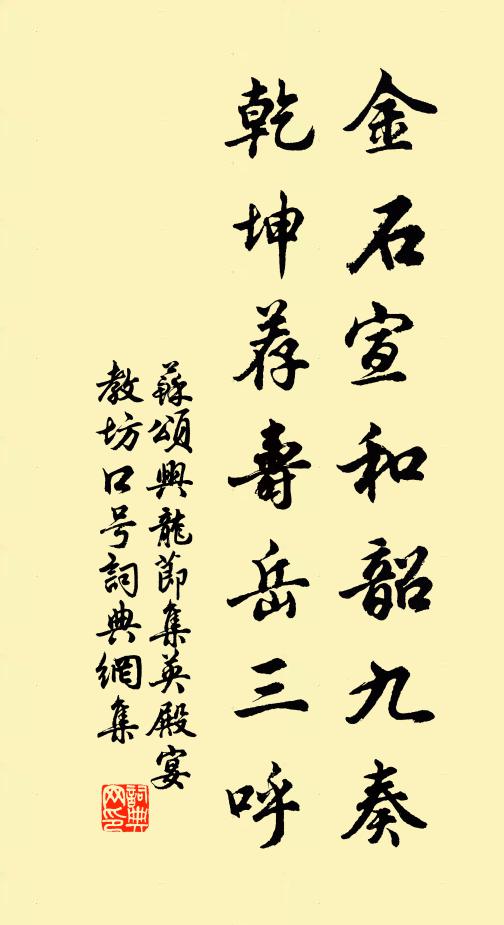 金石宣和韶九奏
乾坤荐壽岳三呼
蘇頌興龍節集英殿宴
教坊口号詞典網集
詞典网印